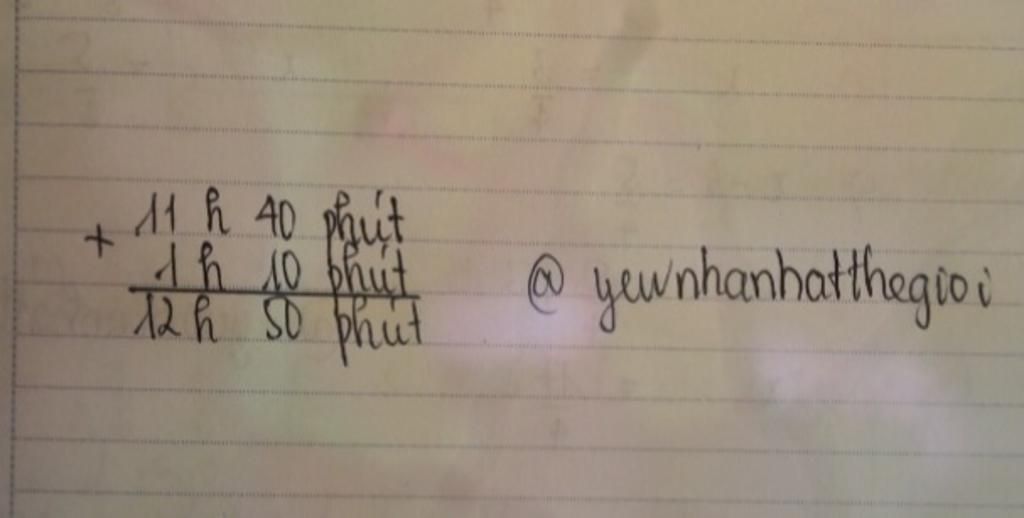 + 11 h 40 phút
1 h 10 phút
12 h 50 phút
@ yewnhanhatthegioi